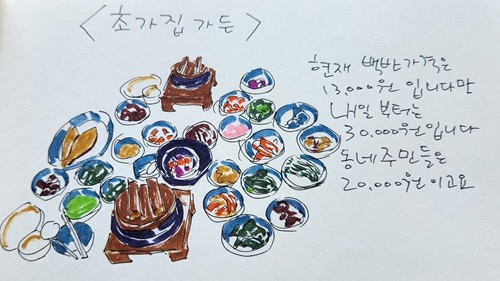 <초가집 가든>
현재 백반가격은
13,000원 입니다만
내일 부터는
30.000원입니다
동네주민들은
20.000원이고요